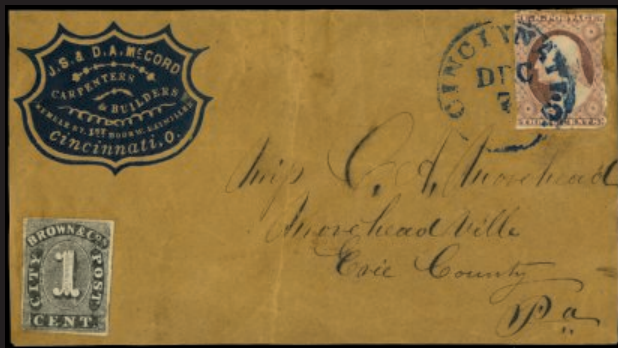 J.S. & D.A. McCORD
CARPENTERS
& BUILDERS
Cincinnati, O.
CINCINNATI O.
DEC
U.S. POSTAGE
THREE CENTS
Miss C. A. Morehead
Moreheadville
Erie County
Pa
BROWN & CO'S
CITY POST
1
CENT.